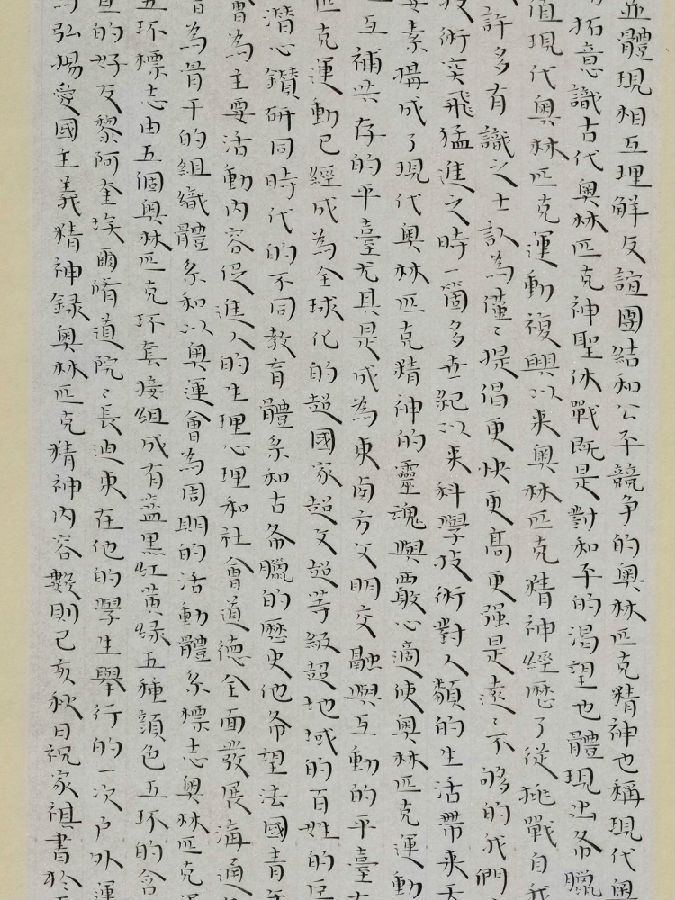 並體現相互理解友誼團結和公平競争的奧林匹克精神也稱現代奧
拓意識古代奧林匹克神聖休戰既是對和平的渴望也體現出希臘
值現代奧林匹克運動複興以来奧林匹克精神經歷了從挑戰自我
許多有識之士認為僅僅提倡更快更高更强是遠遠不够的我們
技術突飛猛進之時一箇多世紀以来科學技術對人類的生活帶来
要素構成了現代奧林匹克精神的靈魂與嚴心適使奧林匹克運動
互補共存的平臺尤其是成為東南方文明交融與互動的平臺
匹克運動已經成為全球化的超國家超文超等級超地域的百姓的
潛心鑽研同時代的不同教育體系和古希臘的歷史他希望法國青年
會為主要活動内容促進人的生理心理和社會道德全面發展溝通
為骨干的組織體系和以奧運會為周期的活動體系標志奧林匹克
五环標志由五個奧林匹克环套接組成有藍黑紅黄緑五種顔色五环的含
的好友黎阿奎埃爾脩道院院長迪東在他的學生舉行的一次户外運
弘揚愛國主義精神録奧林匹克精神内容數則己亥秋日祝家祺書於